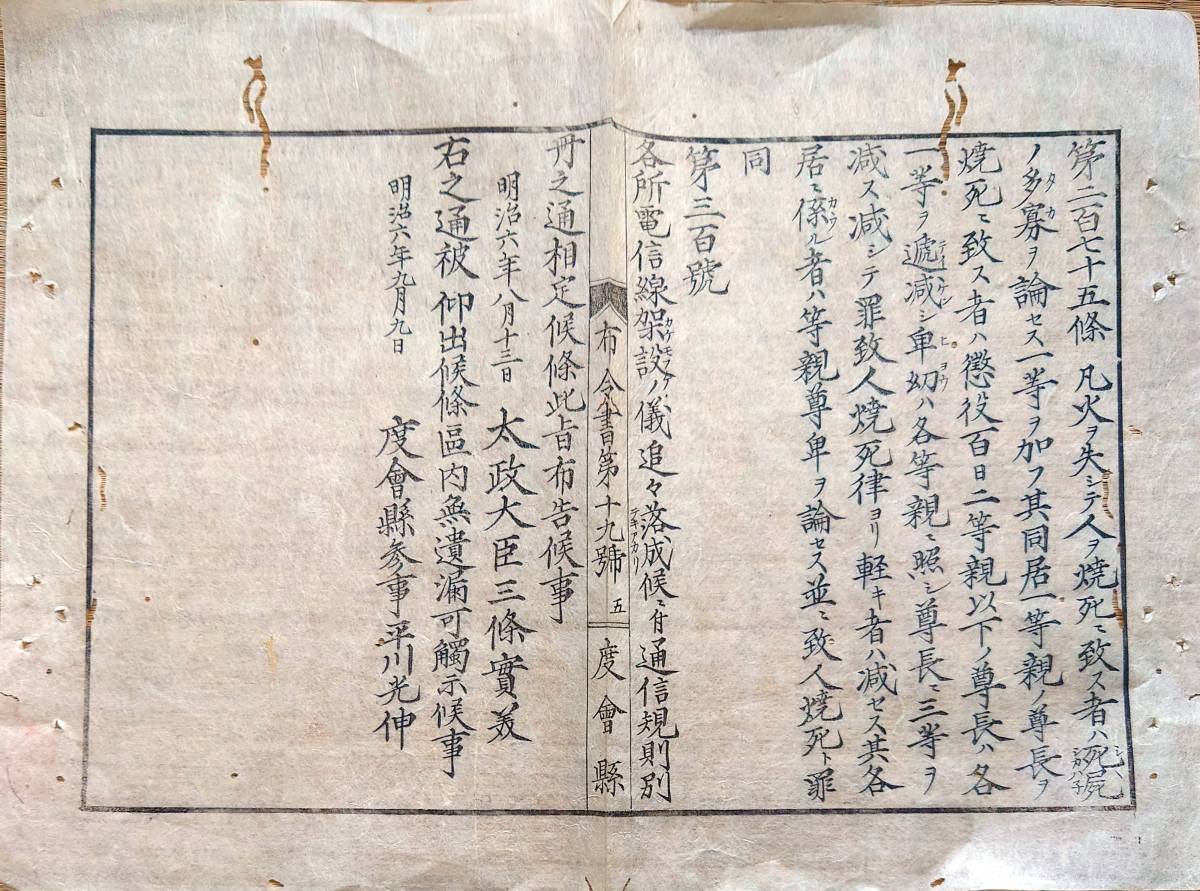 第二百七十五條 凡火ヲ失シテ人ヲ燒死ニ致ス者ハ死屍
ノ多寡ヲ論セス一等ヲ加フ其同居一等親ノ尊長ヲ
燒死ニ致ス者ハ懲役百日二等親以下ノ尊長ハ各
一等ヲ遞減シ卑幼ハ各等親ニ照シ尊長ニ三等ヲ
减ス减シテ罪致人燒死律ヨリ軽キ者ハ减セス其各
居ニ係ル者ハ等親尊卑ヲ論セス並ニ致人燒死ト罪
同
第三百號
各所電信線架設ノ儀追々落成候ニ付通信規則別
布令書第十九號 五 度會縣
冊之通相定候條此旨布告候事
明治六年八月十三日 太政大臣三條實美
右之通被 仰出候條區内無遺漏可觸示候事
明治六年九月九日 度會縣参事平川光伸